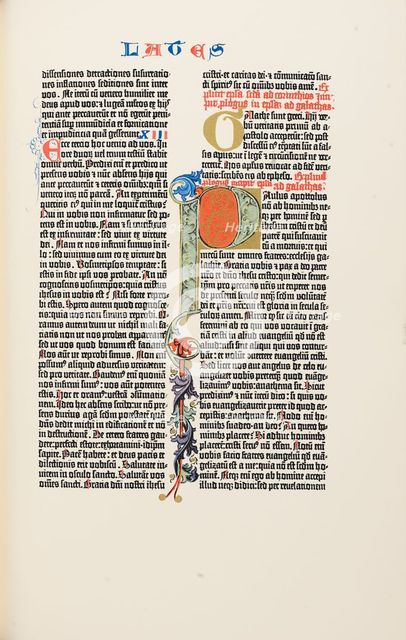 LATES
dissensiones detractiones susurrationes
nes inflationes seditiones sint inter
vos. Ne iterū cū venero humiliet me
deus apud vos: et lugeā m̄ltos ex hijs
qui ante peccaverūt et nō egerūt peni-
tentiā sup immūdicia et fornicatione
et impudicicia quā gesserunt. XIII
Ecce tercio hoc venio ad vos. In
ore duorū vel trium testiū stabit
omne verbū. Predixi em̄ et predico ut
presens vobis et nūc absens hijs qui
ante peccaverūt et ceteris omībus: qm̄ si
venero iterū nō parcā. An experimentū
queritis eius qui in me loquit̄ cristus?
Qui in vobis non infirmatur sed po-
tens est in vobis. Nam et si crucifixus
est ex infirmitate: sed vivit ex virtute
dei. Nam et nos infirmi sumus in il-
lo: sed vivimus cum eo ex virtute dei
in vobis. Vosmetipsos temptate: si
estis in fide: ipsi vos probate. An nō
cognoscitis vosmetipsos: quia cristus
ihesus in vobis est? Nisi forte repro-
bi estis. Spero autem quod cognosce-
tis: quia nos non sumus reprobi. O-
ramus autem deum ut nichil mali fa-
ciatis: non ut nos probati appareamus
sed ut vos quod bonum est faciatis
Nos aūt ut reprobi simus. Non em̄
possumus aliquid adversus veritatem:
sed pro veritate. Gaudemus em̄ quoniā
nos infirmi sumus: vos aūt potentes
estis. Hoc et oramus: vestrā ꝯsumatio-
nem. Ideo hec absens scribo: ut nō pre-
sens durius agā sedm̄ potestatē quā
dn̄s dedit michi in edificationē et nō
in destructionē. De cetero fratres gau-
dete: perfecti estote: exhortamini: idipm̄
sapite. Pacē habete: et deus pacis et
dilectionis erit vobiscū. Salutate in-
vicem in osculo sancto. Salutāt vos
om̄es sancti. Gratia dn̄i nostri ihesu
cristi: et caritas dei: et cōmunicatio san-
cti spiritus sit cū omībus vobis amē. Ex-
plicit ep̄la scd̄a ad corinthios Inci-
pit plogus in ep̄lā ad galathas.
Galathe sunt greci. Hij ver-
bū veritatis primū ab a-
postolo acceperūt: sed post
discessū eius tēptati sūt a fal-
sis aplis: ut ī legē et circūcisionē ver-
terent̄. Hos aplus revocat ad fidē veri-
tatis: scribēs eis ab epheso. Explicit
plogus Incipit epl̄a ad galathas.
Paulus apostolus
nō ab hominibus ne-
qz per hominē sed p
ihesum cristū et deū
patrē qui suscitavit
eū a mortuis: et qui
mecū sunt omnes fratres: ecclesijs ga-
lathie. Gratia vobis et pax a deo patre
et dn̄o ihesu cristo: qui dedit semet-
ipm̄ pro peccatis nr̄is: ut eriperet nos
de presenti seculo neqm̄ sedm̄ volūtatē
dei et pr̄is nr̄i: cui est gloria in secula se-
culorū amen. Miror qp sic tā cito trans-
ferimini ab eo qui vos vocavit ī gra-
tiā cristi in aliud evangeliū: qd̄ nō est
aliud: nisi sunt aliqui qui vos contur-
bāt: et volūt ꝯvertere evangeliū cristi.
Sed licet nos aut angelus de celo ev-
angelizet vobis preterqz quod evan-
gelizavimus vobis: anathema sit. Sicut
prediximus et nūc iterū dico: si quis vo-
bis evangelizaverit preter id quod ac-
cepistis: anathema sit. Modo em̄ ho-
minibus suadeo an deo? An quero ho-
minibus placere? Si adhuc hominibus
placerē: cristi servus nō essem. Notū em̄
vobis facio fratres evangeliū qd̄ evā-
gelizatū est a me: quia nō est sedm̄ ho-
minē. Neqz em̄ ego ab homine accepi
illud neqz didici: sed per revelationem